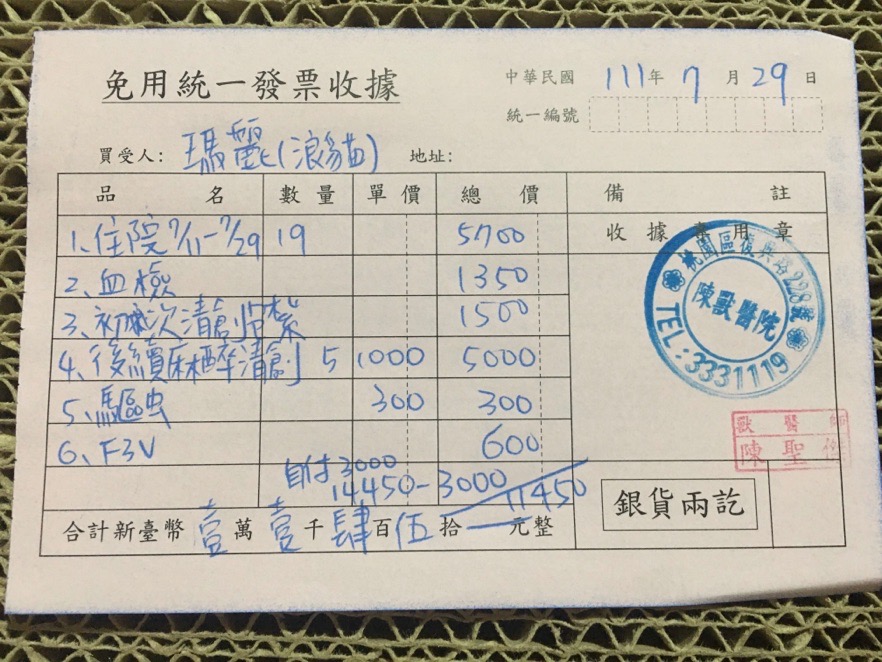 免用統一發票收據
中華民國 111年 7月 29日
統一編號
買受人: 瑪麗(浪貓) 地址:
品名 數量 單價 總價 備註
1、住院 7/11-7/29 19 5700
收據專用章
2、血檢 1350
3、初次清創 1500
4、後續麻醉清創 5 1000 5000
5、驅虫 300 300
6、F3V 600
自付3000
14450-3000 11450
合計新臺幣 壹萬 壹千 肆百 伍拾 元整
銀貨兩訖
桃園區復興路228號
陳獸醫院
TEL:3331119
獸醫師
陳聖